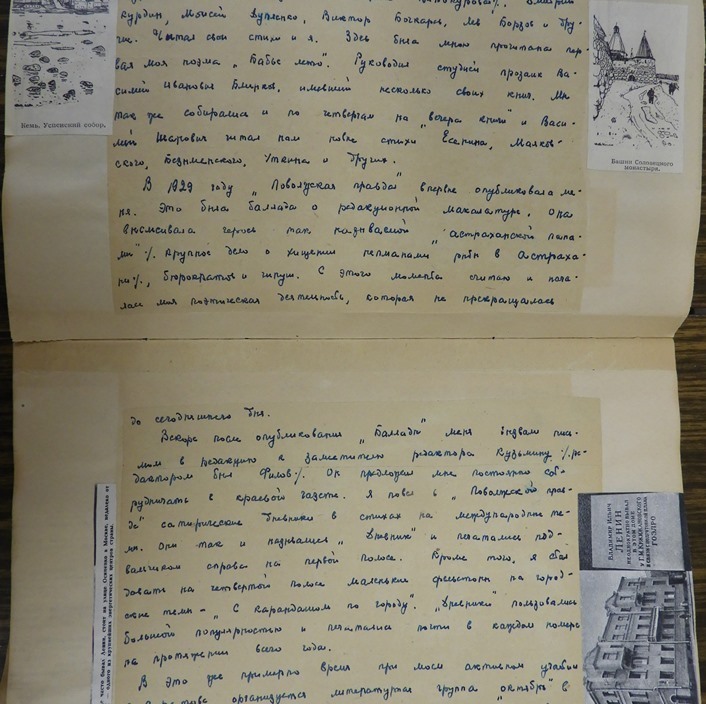 Курдин, Моисей Виктор Бочкарев, Лев Борзов и дру-
гие. Читал свои стихи и я. Здесь была мною прочитана пер-
вая моя поэма „Бабье лето". Руководил студией прозаик Ва-
силий Иванович имевший несколько своих книг. Мы
так же собирались и по четвергам на „вечера книги" и Васи-
лий Иванович читал нам новые стихи Есенина, Маяков-
ского, Безыменского, Уткина и других.
В 1929 году „Поволжская правда" впервые опубликовала ме-
ня. Это была баллада о редакционной макалатуре. Она
высмеивала героев так называемой „астраханской пана-
мы" /. Крупное дело о хищении нэпманами рыбы в Астраха-
ни /, бюрократов и чинуш. С этого момента считаю и нача-
лась моя поэтическая деятельность, которая не прекращалась
Кемь, Успенский собор.
Башня Соловецкого
монастыря.
до сегодняшнего дня.
Вскоре после опубликования „Баллады" меня вызвали пись-
мом в редакцию к заместителю редактора Кузьмину /. ре-
дактором был Филов /. Он предложил мне постоянно сот-
рудничать в краевой газете. Я повел в „Поволжской прав-
де" сатирические дневники в стихах на международные те-
мы. Они так и назывались „Дневник" и печатались под-
вальчиком справа на первой полосе. Кроме того, я стал
давать на четвертой полосе маленькие фельетоны на город-
ские темы – „С карандашом по городу". „Дневники" пользовались
большой популярностью и печатались почти в каждом номере
на протяжении всего года.
В это же примерно время при моем активном участии
организуется литературная группа „Октябрь" в
часто бывал Ленин, стоит на улице Осипенко в Москве, недалеко от
одного из крупнейших энергетических центров страны.
Владимир Ильич
ЛЕНИН
неоднократно бывал
в этом доме
у Г.М. Кржижановского
ГОЭЛРО